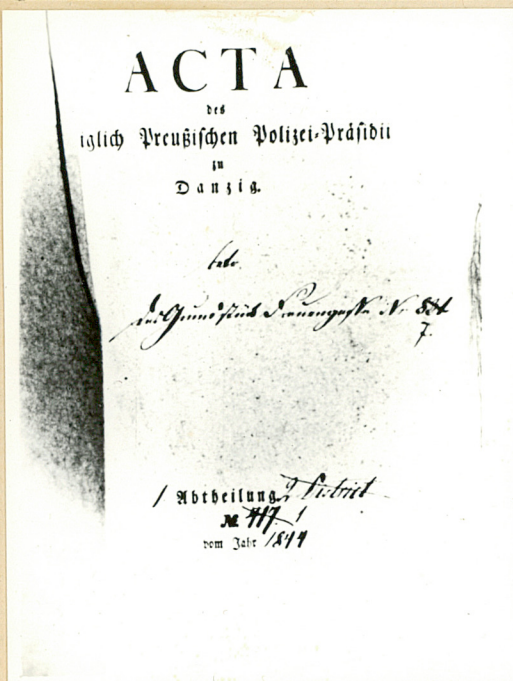 ACTA
des
iglich Preußischen Polizei-Präsidii
zu
Danzig.
betr.
das Grundstück Frauengasse Nr 834
7.
1 Abtheilung 2 District
№ 417. 1
vom Jahr 1844